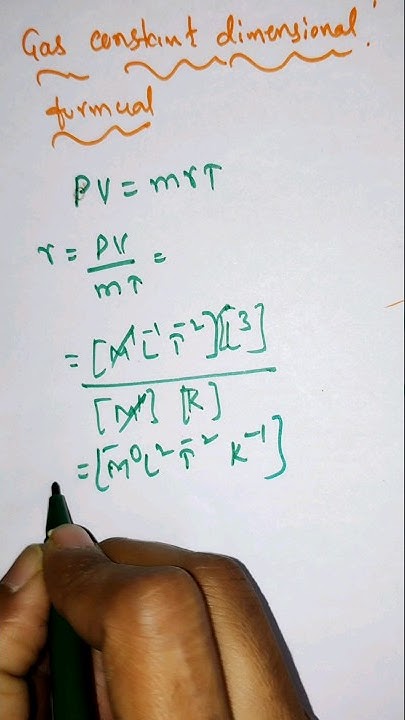 Gas constant dimensional
formual
PV = mrT
r = PV / mT =
= [M¹ L⁻¹ T⁻²][L³] / [M¹] [K]
= [M⁰L² T⁻² K⁻¹]